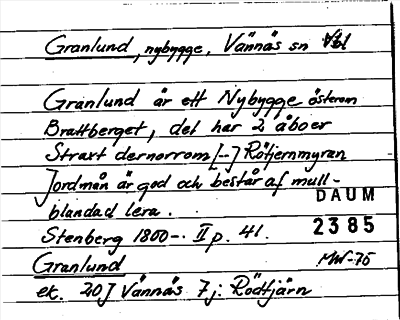 Granlund, nybygge, Vännäs sn Vbl
Granlund är ett Nybygge österom
Brattberget, det har 2 åboer
Straxt dernorrom [--] Rötjernmyran
Jordmån är god och består af mull-
blandad lera.
DAUM
Stenberg 1800-. II p. 41.
2385
Granlund
MW-75
ek. 20J Vännäs 7j: Rödtjärn